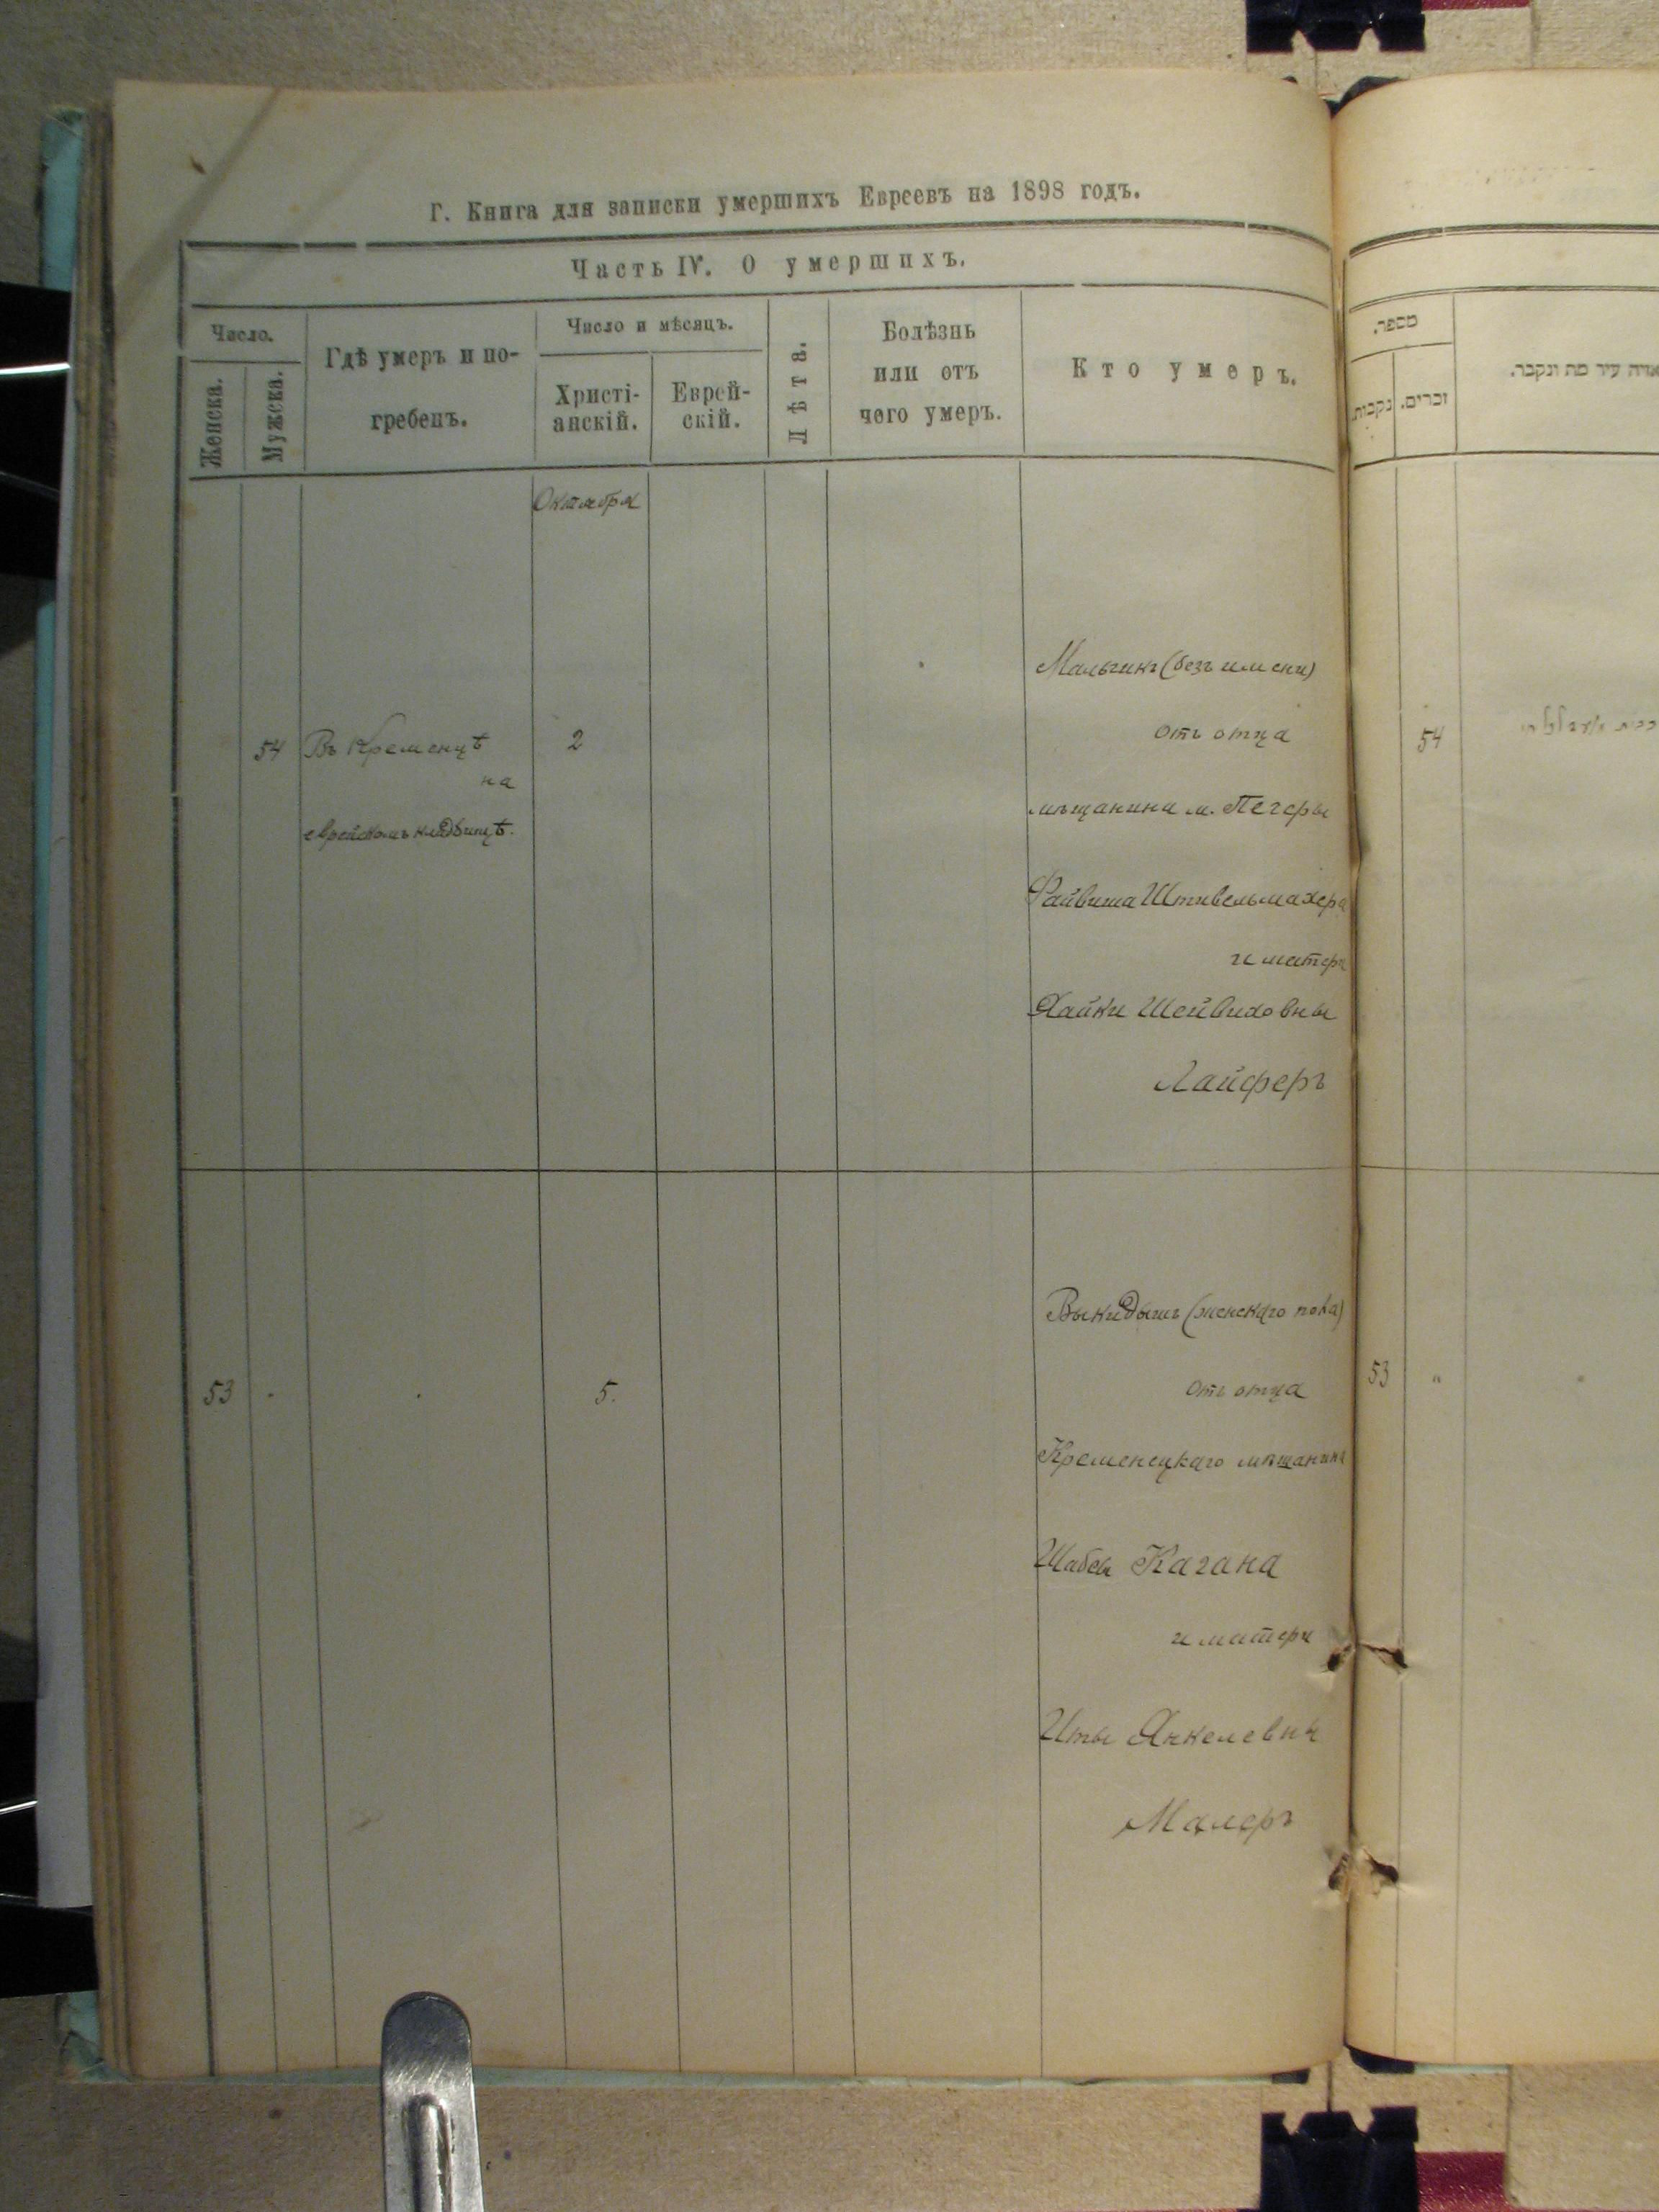 Г. Книга для записки умершихъ Евреевъ на 1898 годъ.
Часть IV. О умершихъ.
Число.
Женска.
Мужска.
Гдѣ умеръ и по-
гребенъ.
Число и мѣсяцъ.
Христі-
анскій.
Еврей-
скій.
Лѣта.
Болѣзнь
или отъ
чего умеръ.
Кто умеръ.
Октября
54
Въ Кременцѣ
на
еврейскомъ кладбищѣ.
2
Мальчикъ (безъ имени)
отъ отца
мѣщанина м.
Файвиша Штивельмахера
и матери
Хайки
Лайферъ
53
5.
Выкидышъ (женскаго пола)
отъ отца
Кременецкаго мѣщанина
Кагана
и матери
Иты Янкелевны
Малеръ
מספר.
נקבות.
זכרים.
עיר מת ונקבר.
54
53